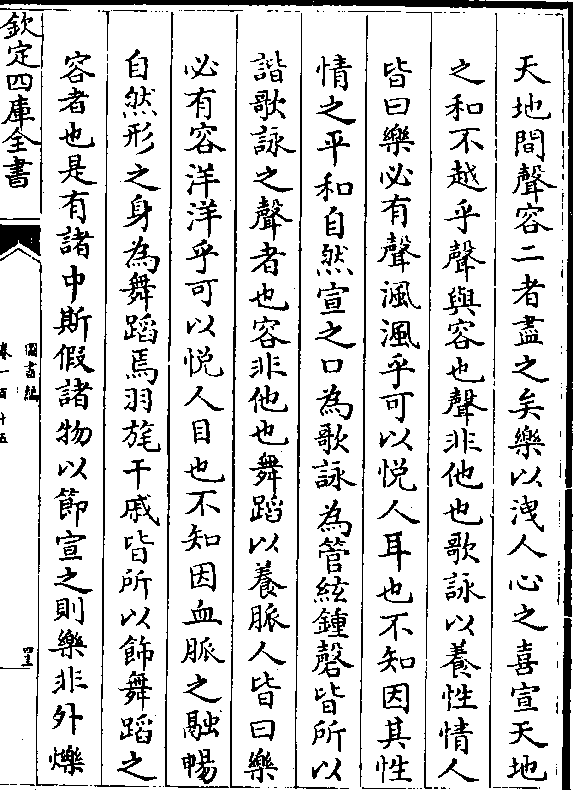 天地間聲容二者盡之矣樂以洩人心之喜宣天地
之和不越乎聲與容也聲非他也歌詠以養性情人
皆曰樂必有聲渢渢乎可以悅人耳也不知因其性
情之平和自然宣之口為歌詠為管絃鍾磬皆所以
諧歌詠之聲者也容非他也舞蹈以養脈人皆曰樂
必有容洋洋乎可以悅人目也不知因血脈之融暢
自然形之身為舞蹈焉羽旄干戚皆所以飾舞蹈之
容者也是有諸中斯假諸物以節宣之則樂非外爍
欽定四庫全書
圖書編
卷一百十五